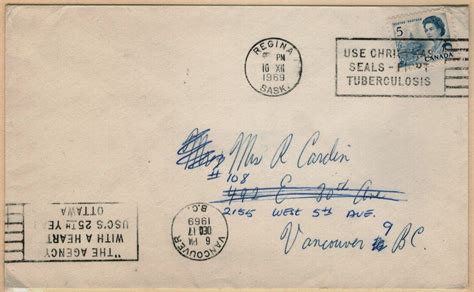 REGINA
PM
10 XII
1969
SASK.
USE CHRISTMAS
SEALS - FIGHT
TUBERCULOSIS
5
CANADA
Mr R Cardin
# 108
492 E 20th Ave
2155 WEST 5th AVE.
Vancouver 9 BC.
VANCOUVER
6 PM
DEC 17
1969
B.C.
"THE AGENCY
WITH A HEART
USC'S 25TH YEA
OTTAWA